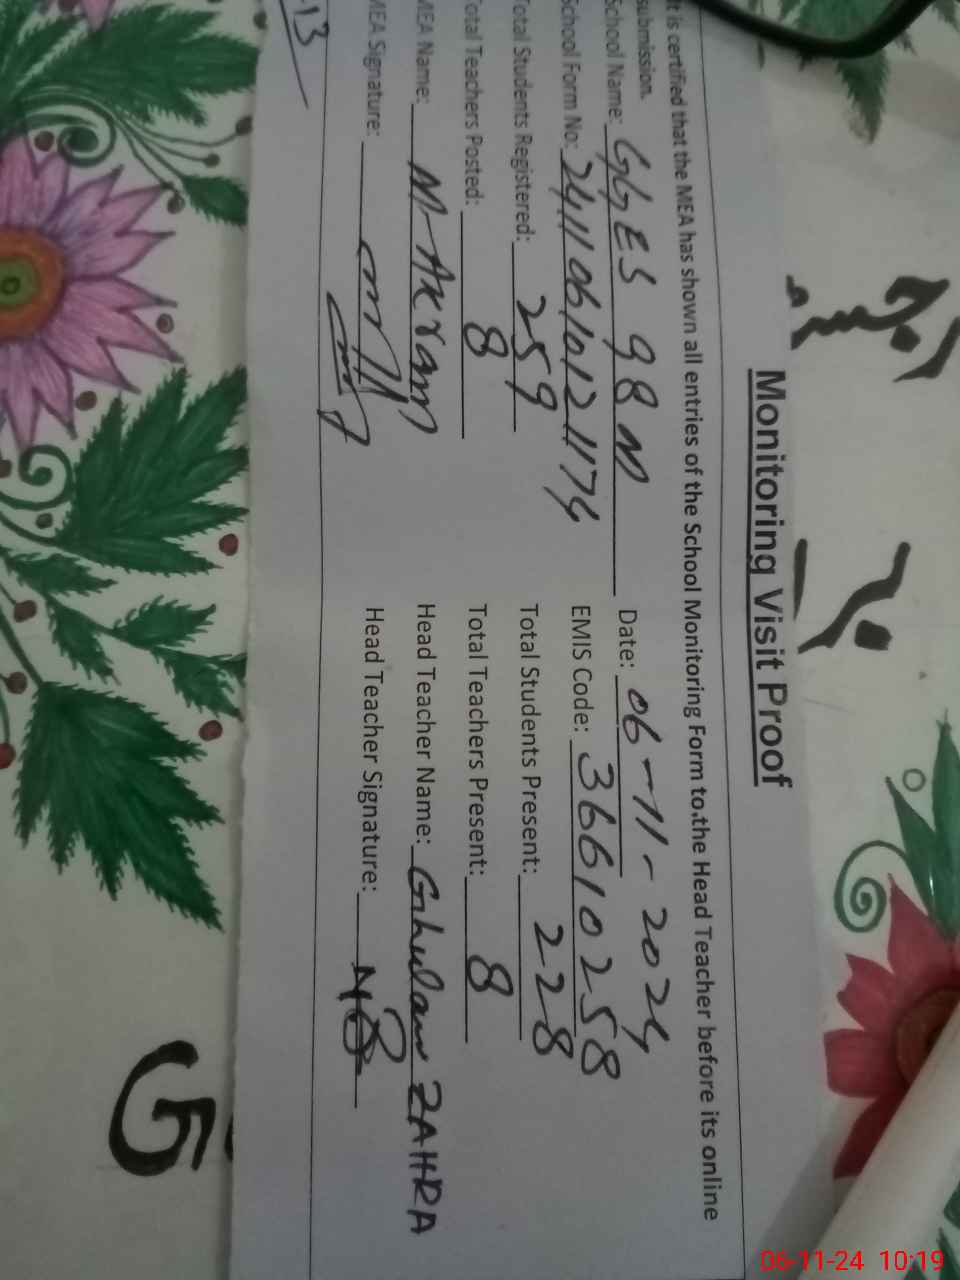 Monitoring Visit Proof
It is certified that the MEA has shown all entries of the School Monitoring Form to the Head Teacher before its online
submission.
School Name: GGES 98 M Date: 06-11-2024
School Form No: EMIS Code: 36610258
Total Students Registered: 259 Total Students Present: 228
Total Teachers Posted: 8 Total Teachers Present: 8
MEA Name: M-Akram Head Teacher Name: Ghulam ZAHRA
MEA Signature: Head Teacher Signature:
13
06-11-24 10:19